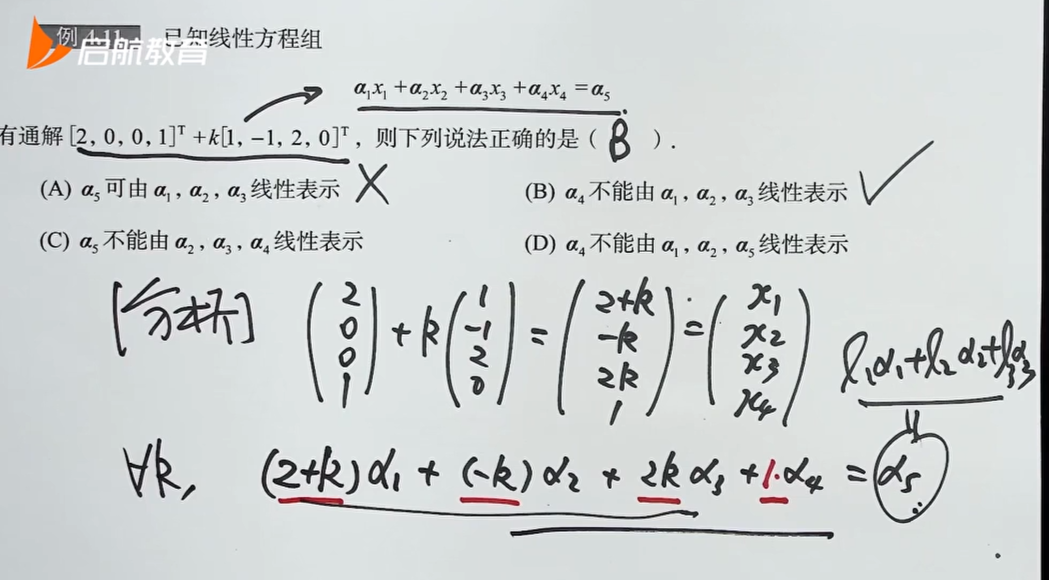 例 4.11 已知线性方程组
启航教育
α₁x₁+α₂x₂+α₃x₃+α₄x₄=α₅
有通解[2, 0, 0, 1]ᵀ+k[1, -1, 2, 0]ᵀ, 则下列说法正确的是( B ).
(A) α₅可由α₁, α₂, α₃线性表示 X
(B) α₄不能由α₁, α₂, α₃线性表示 ✓
(C) α₅不能由α₂, α₃, α₄线性表示
(D) α₄不能由α₁, α₂, α₅线性表示
[分析] (2 0 0 1) + k(1 -1 2 0) = (2+k -k 2k 1) = (x₁ x₂ x₃ x₄)
l₁α₁+l₂α₂+l₃α₃
=
∀k, (2+k)α₁ + (-k)α₂ + 2kα₃ + 1·α₄ = α₅